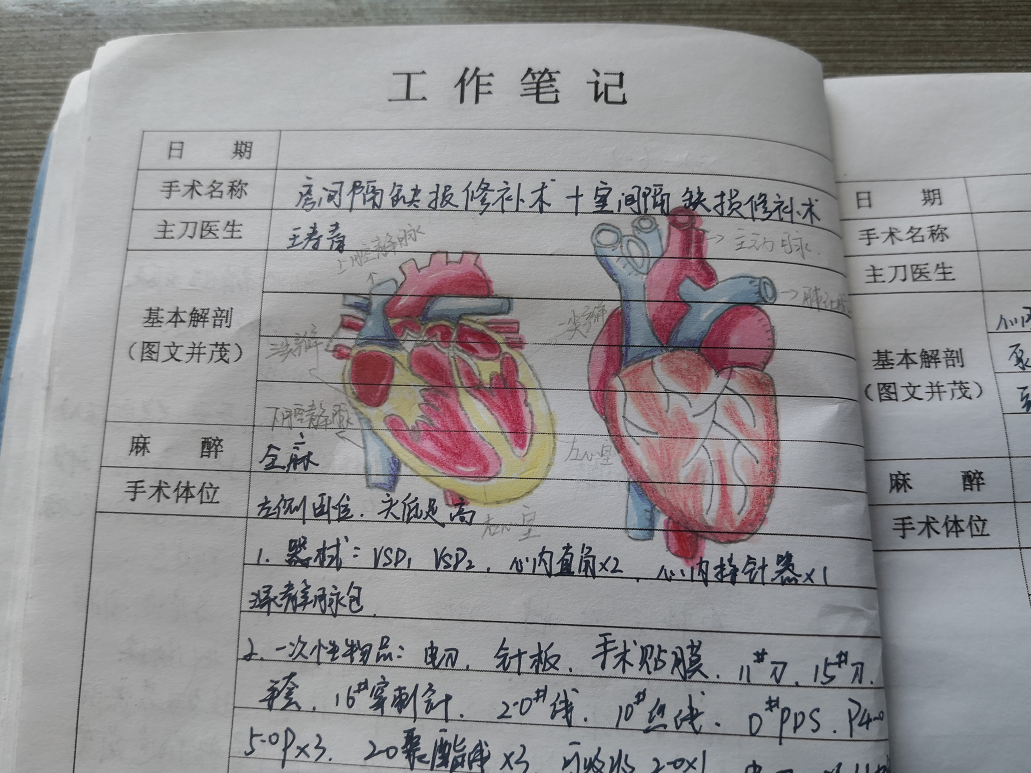 工作笔记
日 期
手术名称 房间隔缺损修补术 + 室间隔缺损修补术
主刀医生
上腔静脉
主动脉
基本解剖
(图文并茂)
三尖瓣
二尖瓣
下腔静脉
左心室
麻 醉 全麻
手术体位 左侧卧位、头低足高
右心室
1. 器材: VSD1 VSD2、心内直角×2、心内持针器×1
深静脉包
2. 一次性物品: 电刀、针板、手术贴膜、11#刀、15#刀、
16#穿刺针、2-0#线、10#丝线、0#PDS、P4-0
5-0P×3、2-0聚酯线×3
日 期
手术名称
主刀医生
基本解剖
(图文并茂)
麻 醉
手术体位